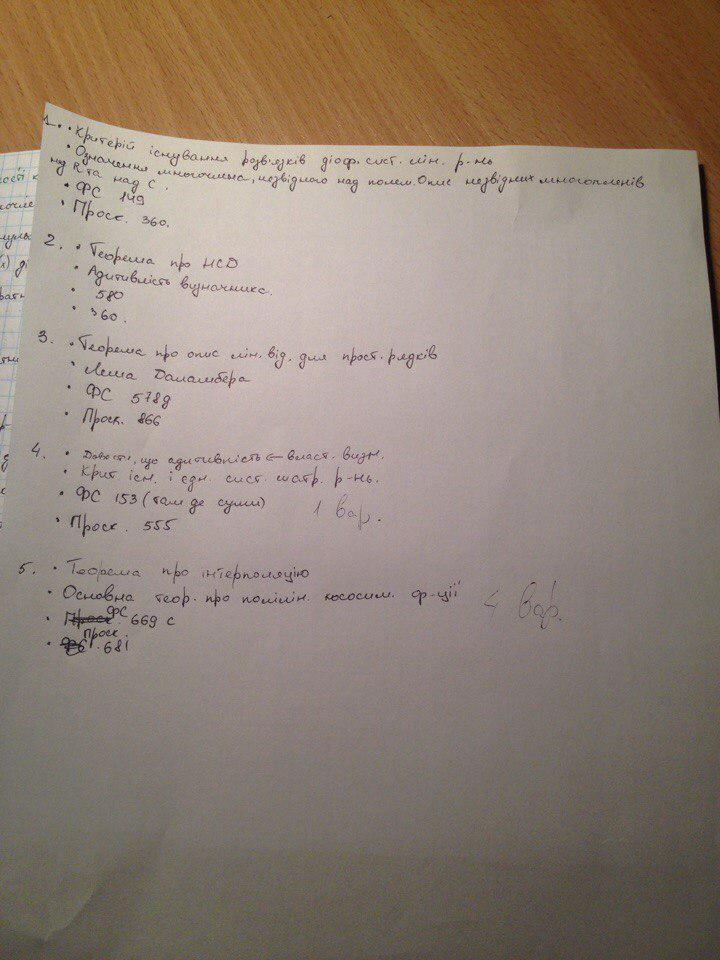 1. • Критерій існування розв'язків діоф. сист. лін. р-нь
• Означення многочлена, незвідного над полем. Опис незвідних многочленів
над R та над C.
• ФС 149
• Проск. 360.
2. • Теорема про НСД
• Адитивність визначника.
• 580
• 360.
3. • Теорема про опис лін. від. для прост. рядків
• Лема Даламбера
• ФС 578д
• Проск. 866
4. • Довести, що адитивність ← власт. визн.
• Крит існ. і єдн. сист. матр. р-нь.
• ФС 153 (там де суми) 1 вар.
• Проск. 555
5. • Теорема про інтерполяцію
• Основна теор. про полілін. кососим. ф-ції 4 вар.
• ФС. 669 с
• Проск. 681